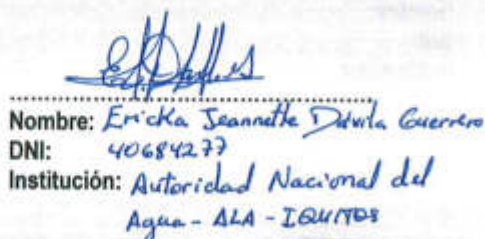 Nombre: Ericka Jeannethe Dávila Guerrero
DNI: 40684277
Institución: Autoridad Nacional del
Agua - ALA - IQUITOS